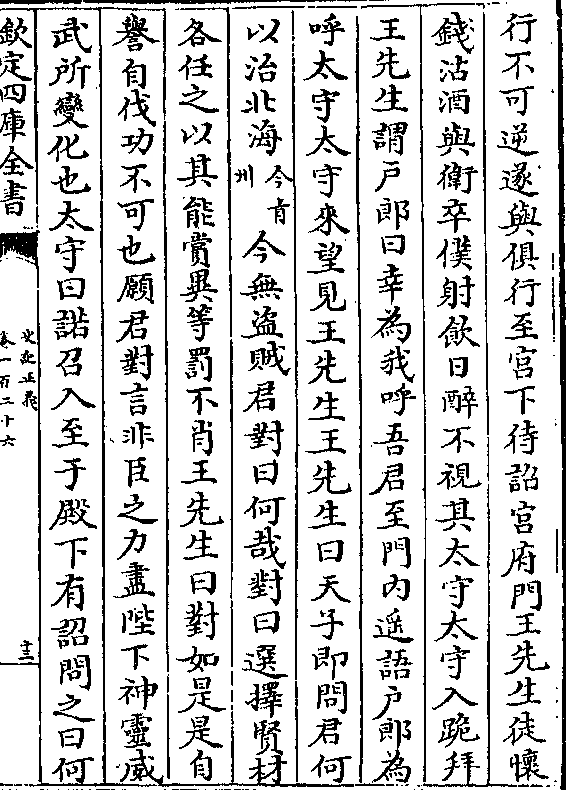 行不可逆遂與俱行至宮下待詔宮府門王先生徒懷
錢沽酒與衛卒僕射飲日醉不視其太守太守入跪拜
王先生謂戶郎曰幸為我呼吾君至門內遥語戶郎為
呼太守太守來望見王先生王先生曰天子即問君何
以治北海今青州今無盗賊君對曰何哉對曰選擇賢材
各任之以其能賞異等罰不肖王先生曰對如是是自
譽自伐功不可也願君對言非臣之力盡陛下神靈威
武所變化也太守曰諾召入至于殿下有詔問之曰何
欽定四庫全書
史記正義
卷一百二十六